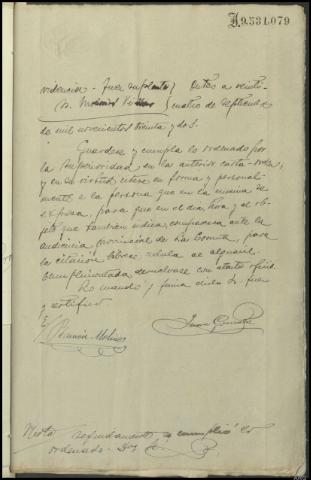 A9.531.079
videncia - Juez suplente } Ortes a veinti-
Sr. Molinos } cuatro de septiembre
de mil novecientos treinta y dos.
Guardese y cumpla lo ordenado por
la superioridad en la anterior carta-orden,
y en su virtud, citese en forma y personal
mente a la persona que en la misma se
expresa, para que en el dia, hora y el ob-
jeto que tambien indica, comparezca ante la
audiencia provincial de La Coruña, para
la citación librese cedula al alguacil.
Cumplimentada devuelvase con atento oficio.
Lo mandó y firma dicho Sr. Juez
y certifico.
E/ Molinos
Juan
Nota: Seguidamente se cumplió lo
ordenado. Doy fé.